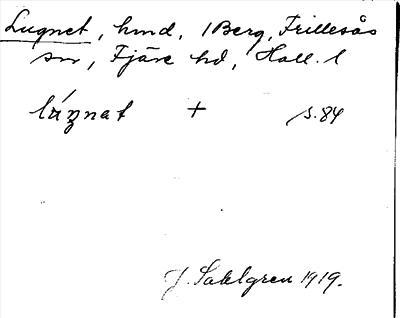 Lugnet, hmd, 1 Berg, Frillesås
sn, Fjäre hd, Hall. l
lúŋnat + s. 84
J. Sahlgren 1919.